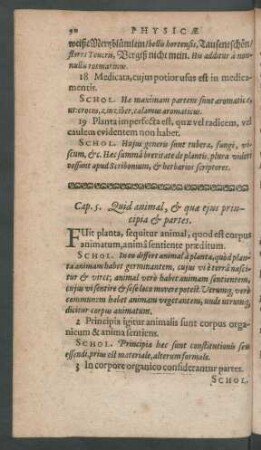 90 PHYSICÆ
weiße Meyblümlein/bellis hortensis, Tausentschön/
flores Teucrii, Vergiß nicht mein. Hu addatur à nonnullis
18 Medicata, cujus potior usus est in medicamentis.
SCHOL. Ha maximam partem sunt aromatica:
ut crocus, calamus aromaticus.
19 Planta imperfecta est, quæ vel radicem, vel
caulem evidentem non habet.
SCHOL. Hujus generis sunt tubera, fungi, viscum,
&c. Hæc summâ brevitate de plantis. plura videri
possunt apud Scribonium, & herbarios scriptores.
Cap. 5. Quid animal, & quæ ejus principia
& partes.
FUit planta, sequitur animal, quod est corpus
animatum, animâ sentiente præditum.
SCHOL. Ideo differt animal à planta, quòd planta
animam habet germinantem, cujus vi è terrâ nascitur
& viret, animal verò habet animam sentientem,
cujus vi sentire & sese loco movere potest. Utrumq; verò
communem habet animam vegetantem, unde utrumq;
dicitur corpus animatum.
2 Principia igitur animalis sunt corpus organicum
& anima sentiens.
SCHOL. Principia hæc sunt constitutionis seu
essendi, prius est materiale, alterum formale.
3 In corpore organico considerantur partes.
SCHOL.